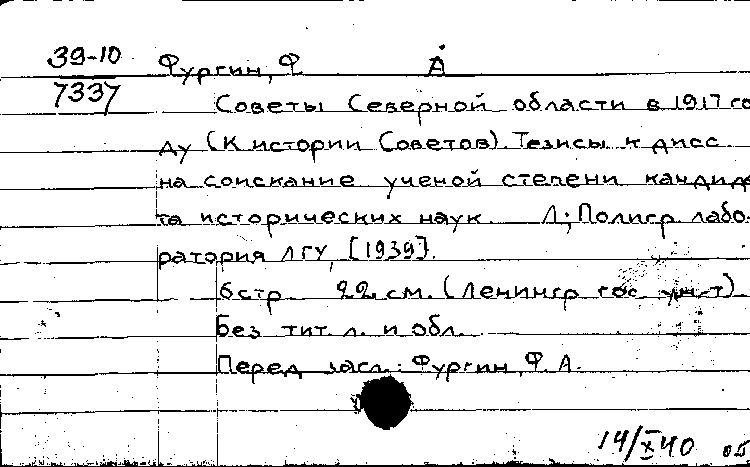 39-10
7337
Фургин, Ф А
Советы Северной области в 1917 го
ду (К истории Советов). Тезисы к дисс
на соискание ученой степени кандида
та исторических наук. Л; Полигр. лабо-
ратория ЛГУ, [1939].
6 стр 22 см. (Ленингр гос ун-т)
Без тит. л. и обл.
Перед загл.: Фургин, Ф. А.
14/X 40 об